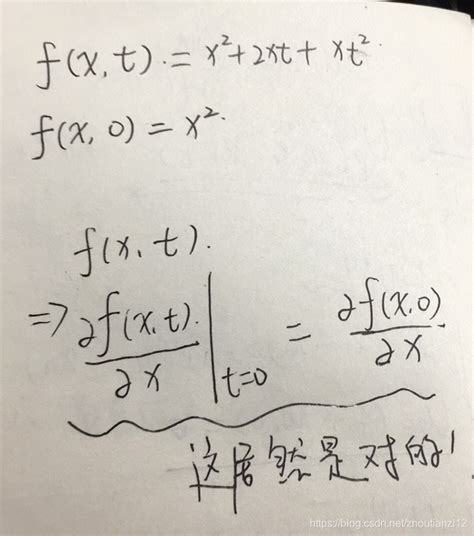 f(x,t) = x²+2xt+xt²
f(x,0) = x².
f(x,t).
⇒ ∂f(x,t)/∂x |t=0 = ∂f(x,0)/∂x
这居然是对的!
https://blog.csdn.net/zhoutianzi12